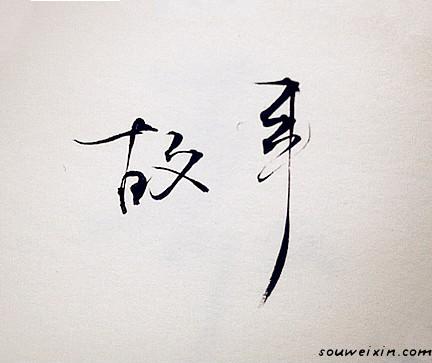 故事
souweixin.com